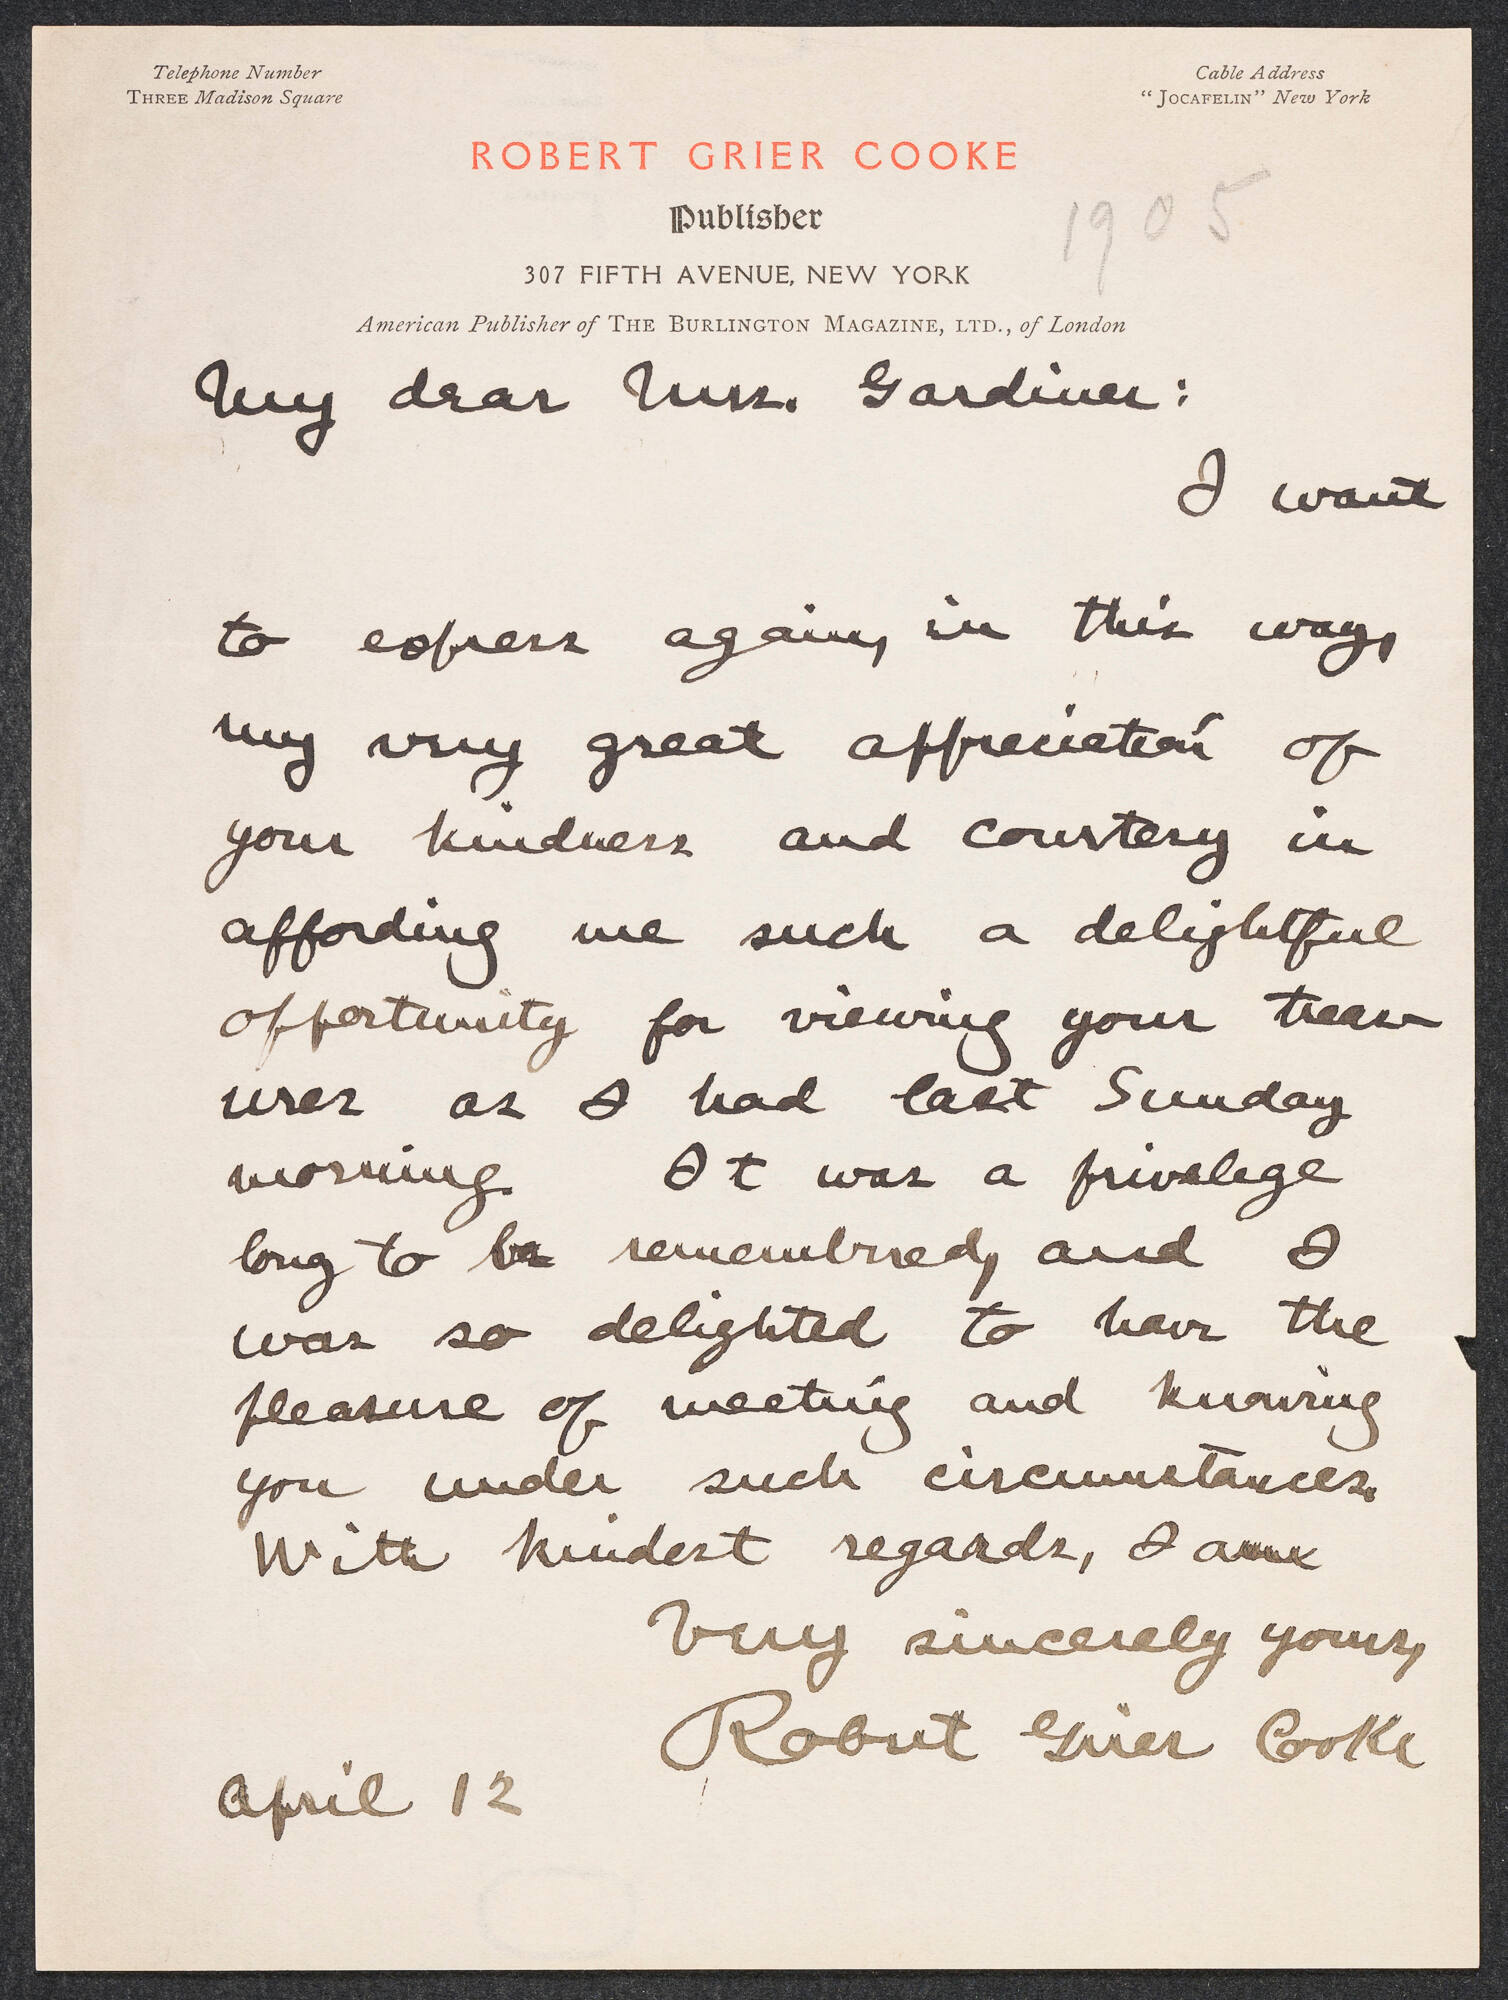 Telephone Number
THREE Madison Square
Cable Address
"JOCAFELIN" New York
ROBERT GRIER COOKE
Publisher
1905
307 FIFTH AVENUE, NEW YORK
American Publisher of THE BURLINGTON MAGAZINE, LTD., of London
My dear Mrs. Gardiner:
I want
to express again, in this way,
my very great appreciation of
your kindness and courtesy in
affording me such a delightful
opportunity for viewing your treas-
ures as I had last Sunday
morning. It was a privalege
long to be remembered, and I
was so delighted to have the
pleasure of meeting and knowing
you under such circumstances.
With kindest regards, I am
Very sincerely yours,
Robert Grier Cooke
April 12